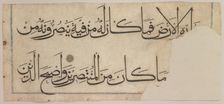 داره الارض فما كان له من فئة ينصرونه من
ما كان من المنتصرين واصبح الذين